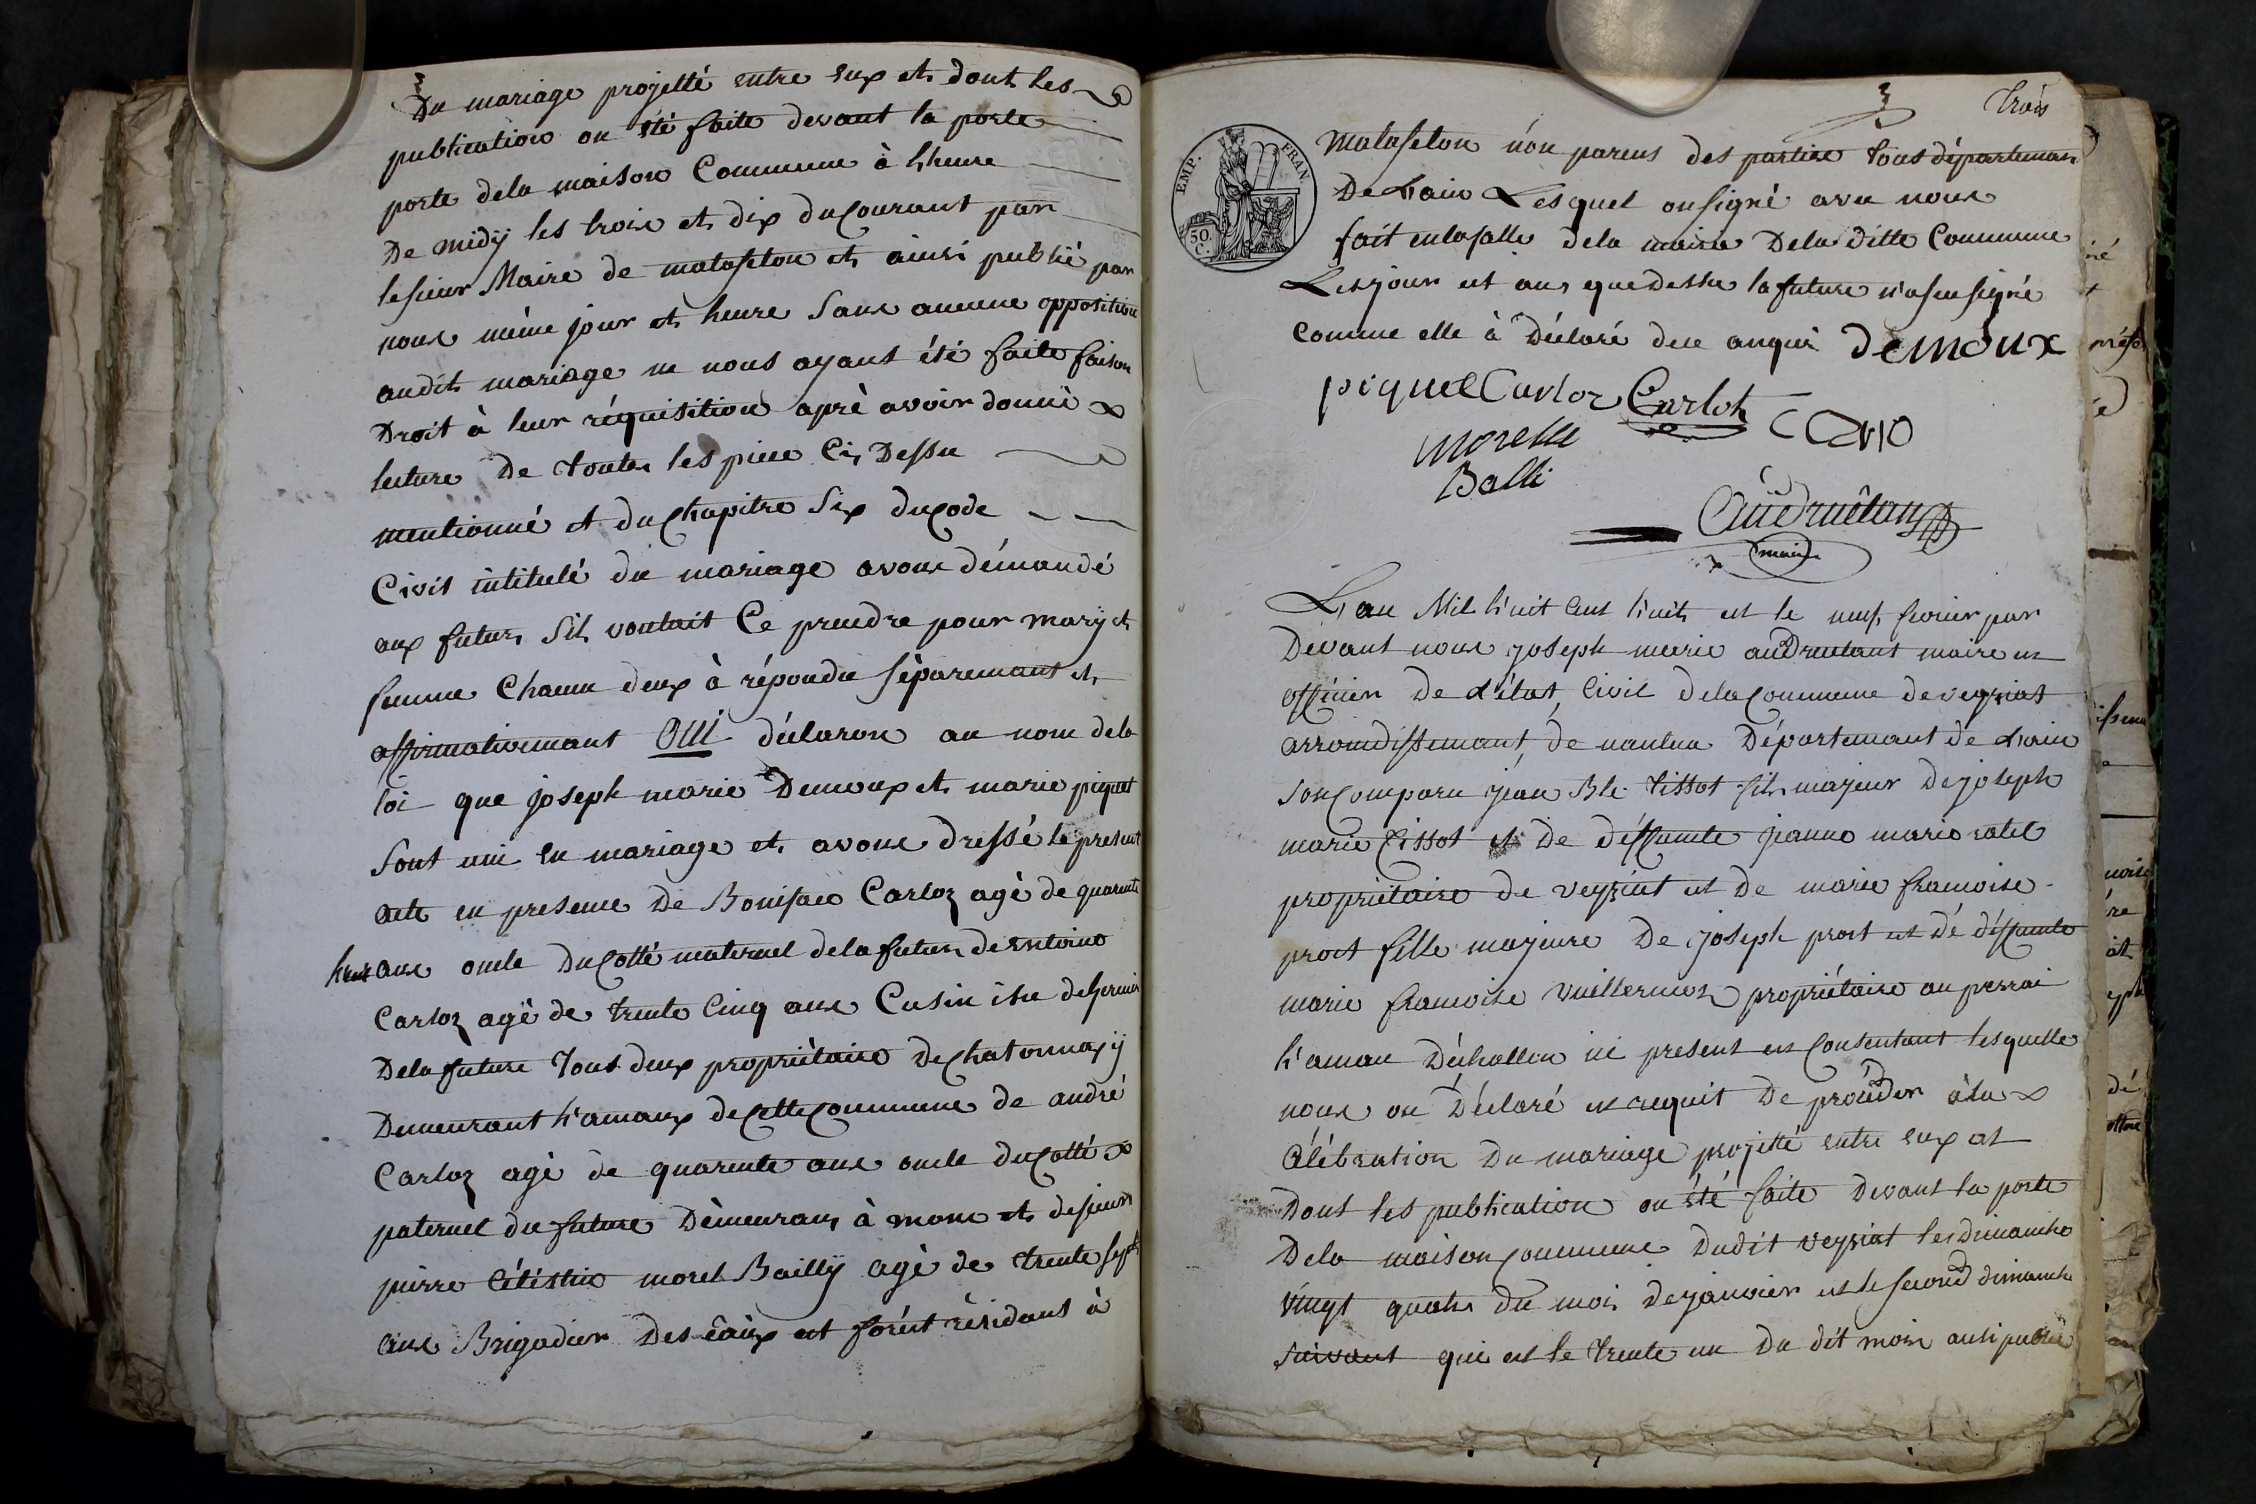 3
Du mariage projetté entre eux et dont les
publication on été faite devant la porte
porte dela maison Commune à lheure
De midÿ les troix et dix ducourant par
lesieur Maire de matafelon et ainsi publié par
nous même jour et heure sans aucune opposition
audit mariage ne nous ayant été faite faison
Droit à leur réquisition aprè avoir donné
lecture De toute les piece Ci Dessu
mentionné et duchapitre Six ducode
Civil intitulé du mariage avons démandé
aux futur Sil voulait Ce prendre pour marÿ et
femme Chacun deux à répondu séparemant et
affirmativemant OUI déclaron au nom dela
loi que joseph marie Demoux et marie piquet
Sont uni en mariage et avons dressé le present
acte en presence De Boniface Carloz agé de quarente
huit ans oncle Ducotté maternel dela future de antoine
Carloz agé de trente Cinq ans Cusin isu de germin
Dela future Tous deux propriétaire De Chatonnax
Demeurant h'amaux decettecommune de andré
Carloz agé de quarente ans oncle ducotté
paternel du future Démeurant à mons et desieur
pierre Céléstin morel Baillÿ agé de trente sept
ans Brigadier Des eaux et forét résidant à
3
trois
EMP. FRAN
50. C.
Matafelon non parens des partie tous départeman
De Lain Lesquel on signé avec nous
fait enlasalle dela mairie Dela ditte Commune
Lesjour et ans quedessu la future n'a seu signé
comme elle à Déclaré due anquis Demoux
piquel Carloz Carlot
Morelle
Balli
Audruëtan
maire
L'an Mil huit cent huit et le neuf fevrier par
Devant nous joseph marie audruetant maire et
officier De l'état Civil delacommune de veyziat
arrondissemant de nantua Départemant de Lain
Son Comparu jean Bte Tissot fils majeur De joseph
marie Tissot et De déffunte jeanne marie
propriétaire de veyziat et De marie francoise
prost fille majeure De joseph prost et dé déffunte
marie francoise vuillermoz propriétaire au
h'amau Déchallon ici present et Consentant lesquelle
nous on Déclaré et requit De procéder àla
Célébration Du mariage projetté entre eux et
Dont les publication on été faite Devant la porte
Dela maison Commune Dudit veyziat les dimanche
vingt quatre du mois De janvier et le second dimanche
suivant qui est le trente un Du dit mois ausi publié